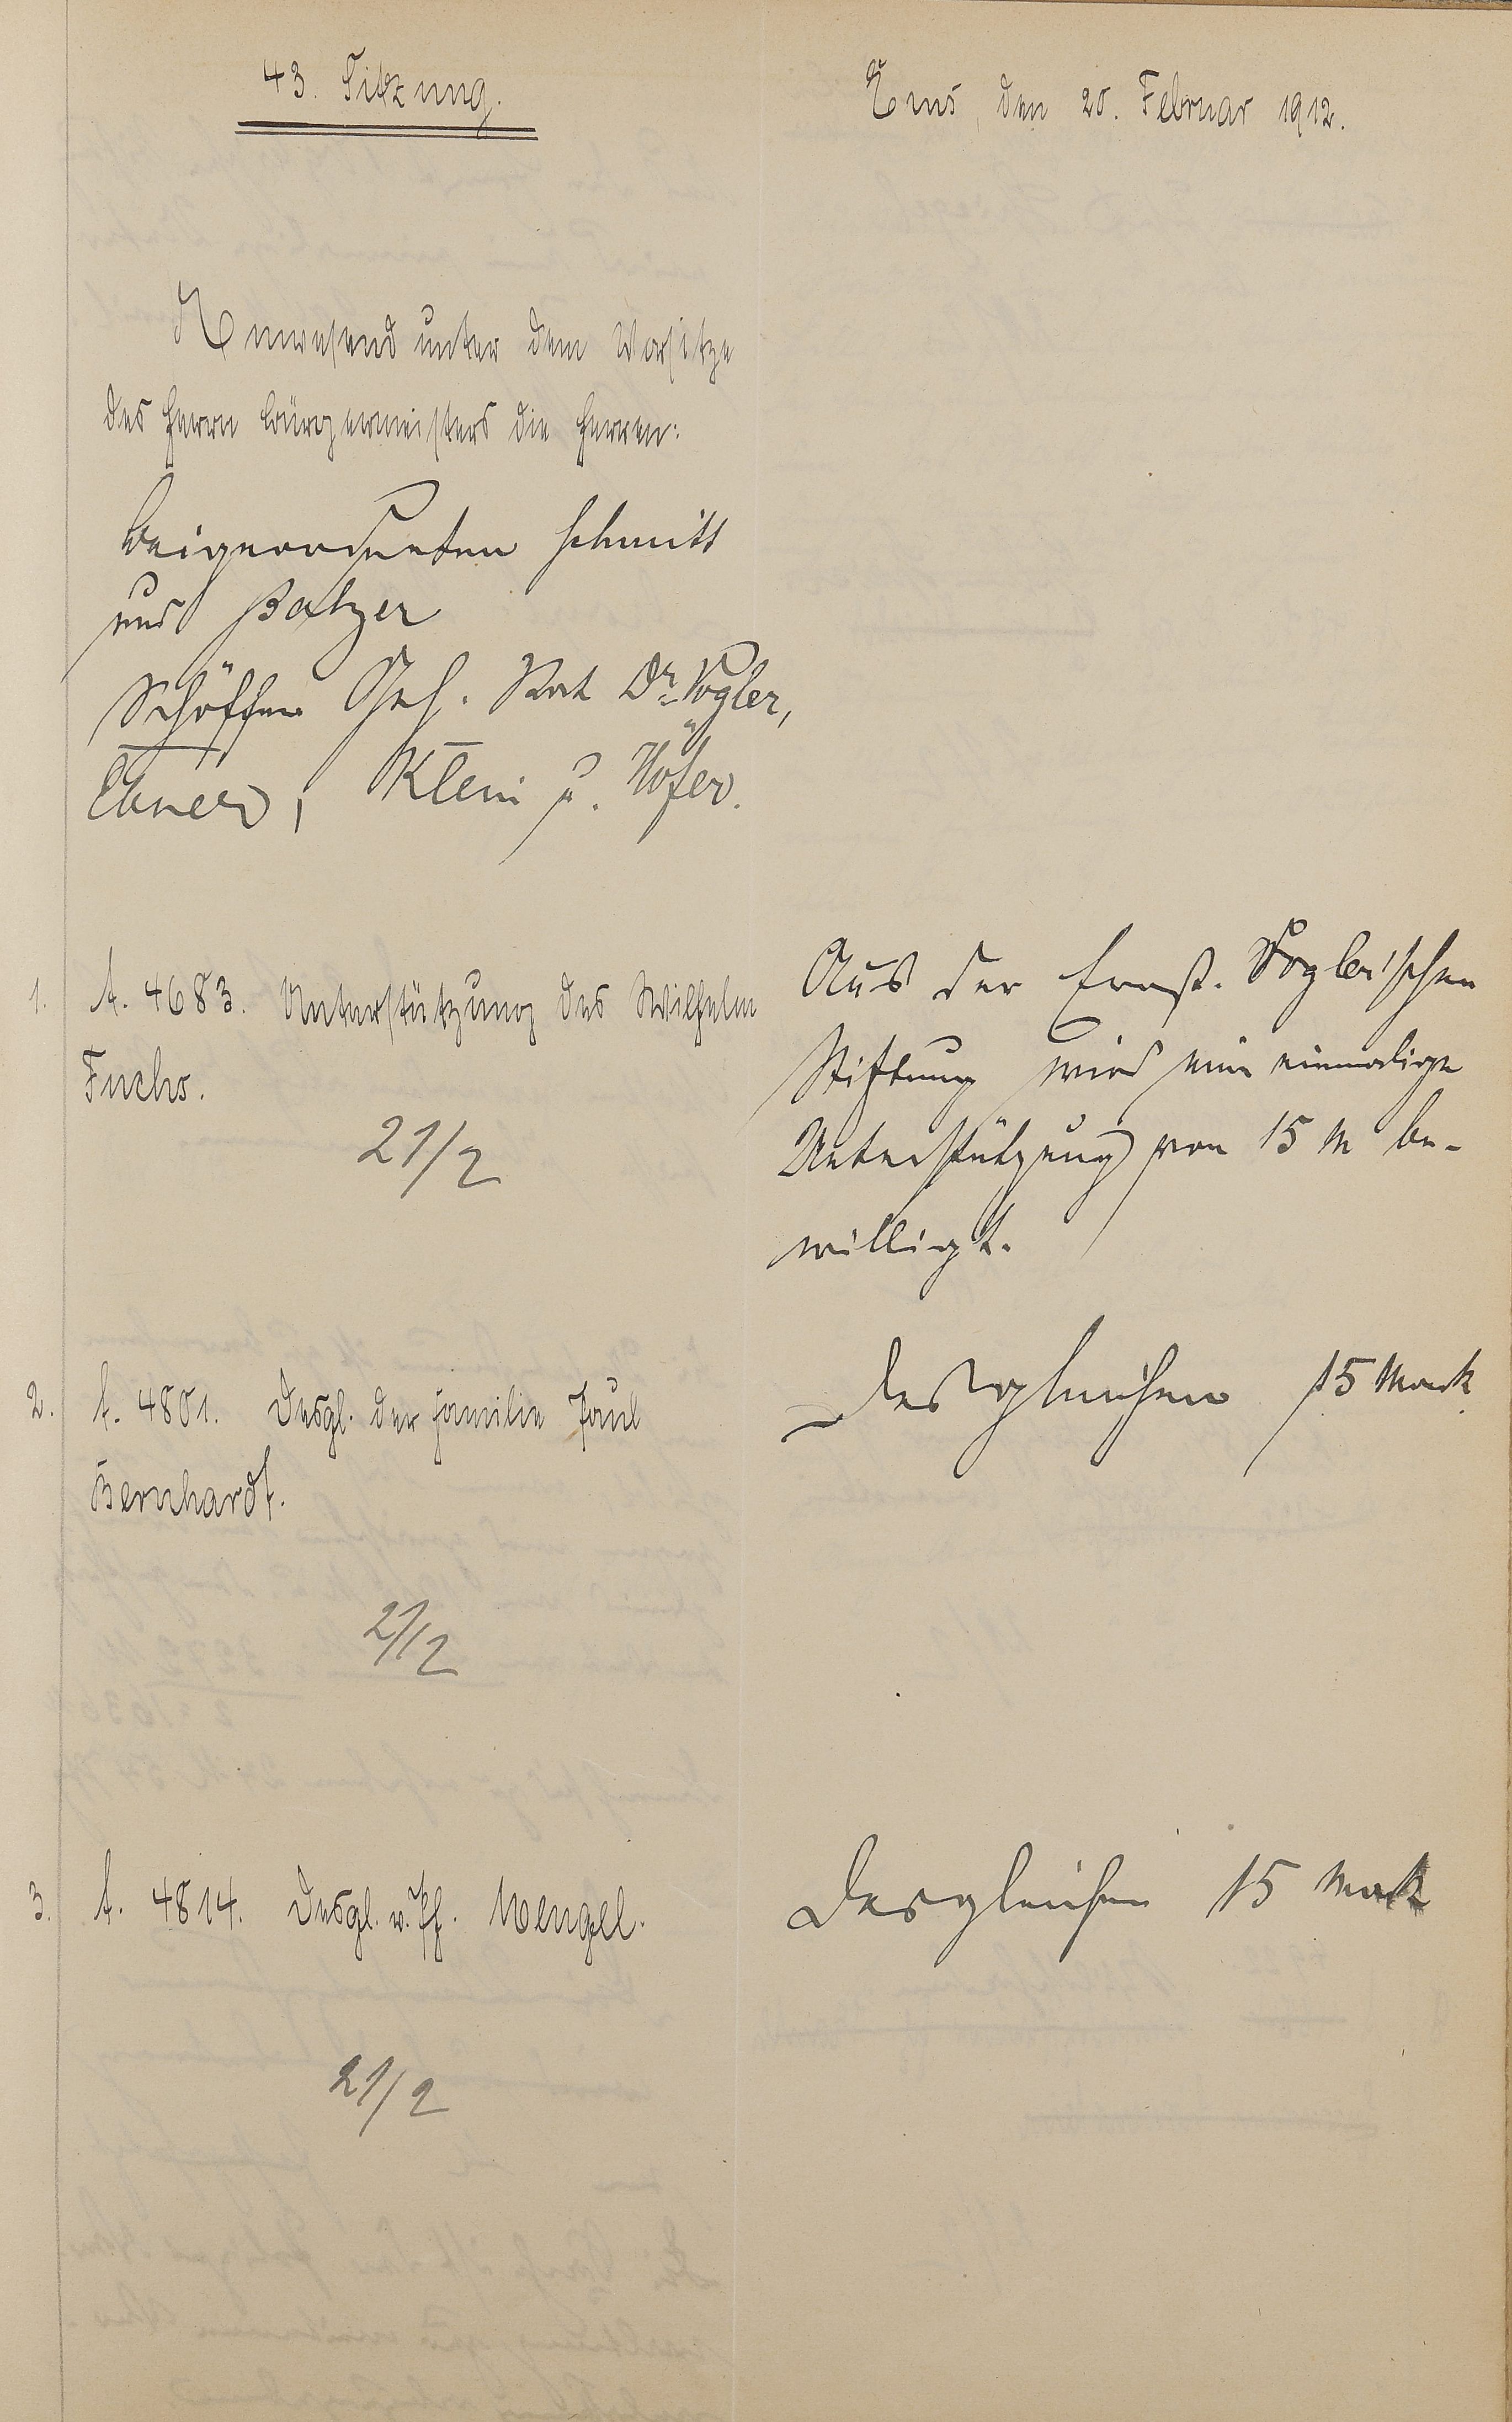 43. Sitzung.
Ems, den 20. Februar 1912.
Anwesend unter dem Vorsitze
des Herrn Bürgermeisters die Herren:
Beigeordneten Schmitt
und Balzer
Schöffen Geh. Rat Dr. Vogler,
Ebner, Klein u. Höfer.
1. A. 4683. Unterstützung des Wilhelm
Fuchs.
21/2
Aus der Ernst-Vogler'schen
Stiftung wird eine einmalige
Unterstützung von 15 M be-
willigt.
2. A. 4801. Desgl. der Familie Paul
Bernhardt.
21/2
Desgleichen 15 Mark
3. A. 4814. Desgl. Mengel.
21/2
Desgleichen 15 Mark